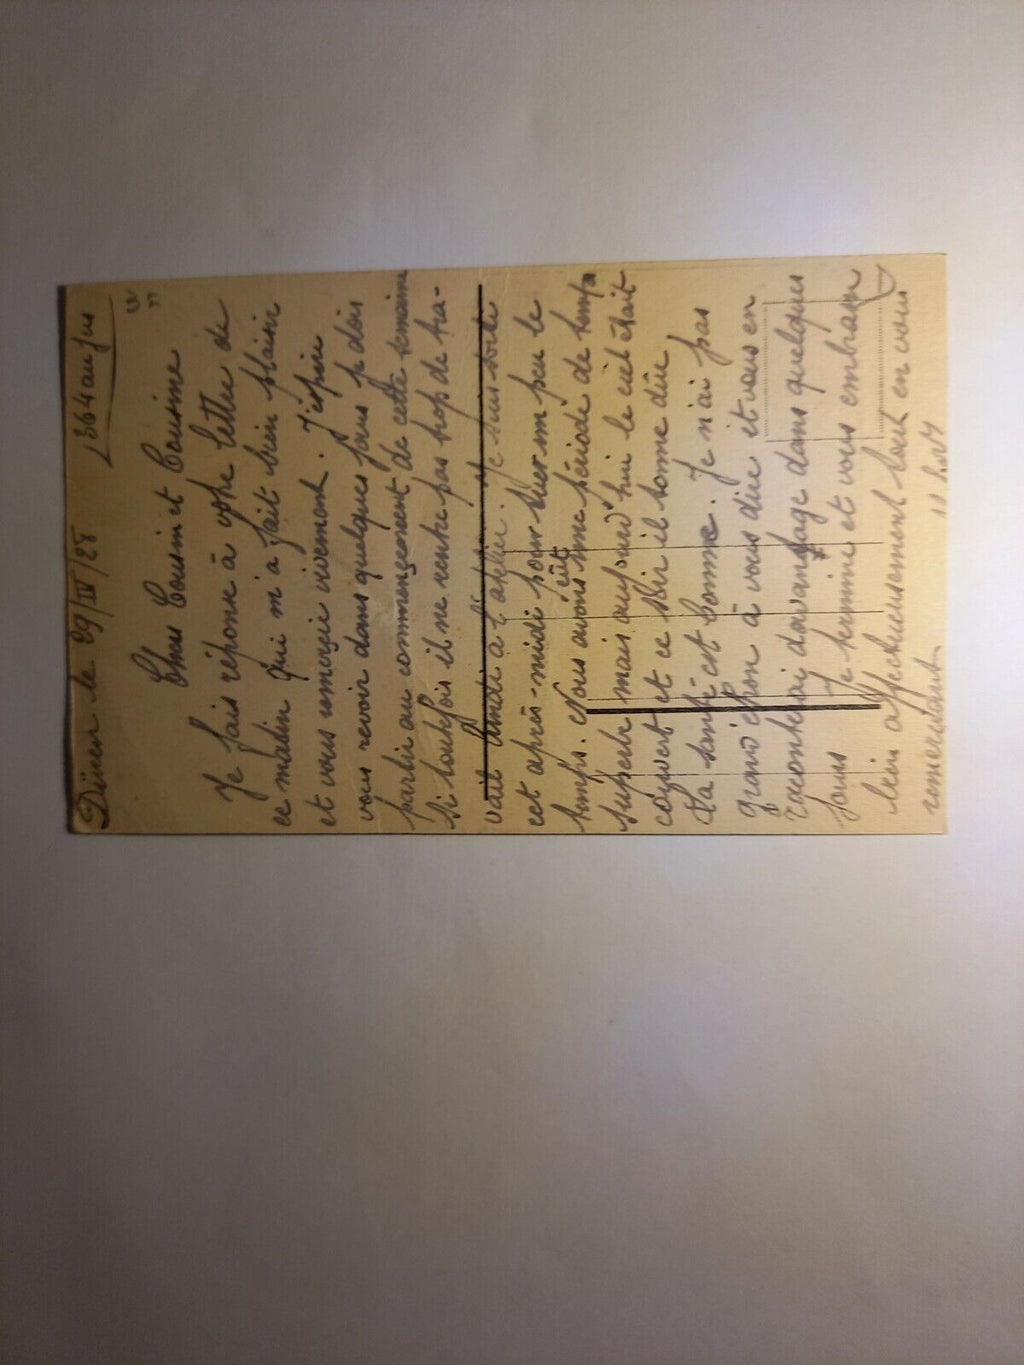 le 29/IV/25
364 au jus
Chers Cousin et Cousine
Je fais réponse à votre lettre de
ce matin qui m'a fait bien plaisir
et vous remercie vivement. J'espère
vous revoir dans quelques jours je dois
partir au commencement de cette semaine
si toutefois il ne rentre pas trop de tra-
vail lundi à l'atelier. Je suis sorti
cet après-midi pour tuer un peu le
temps. Nous avons eût une période de temps
superbe mais aujourd'hui le ciel était
couvert et ce soir il tonne dûr
La santé est bonne. Je n'ai pas
grand chose à vous dire et vous en
raconterai davantage dans quelques
jours Je termine et vous embrasse
bien affectueusement tout en vous
remerciant